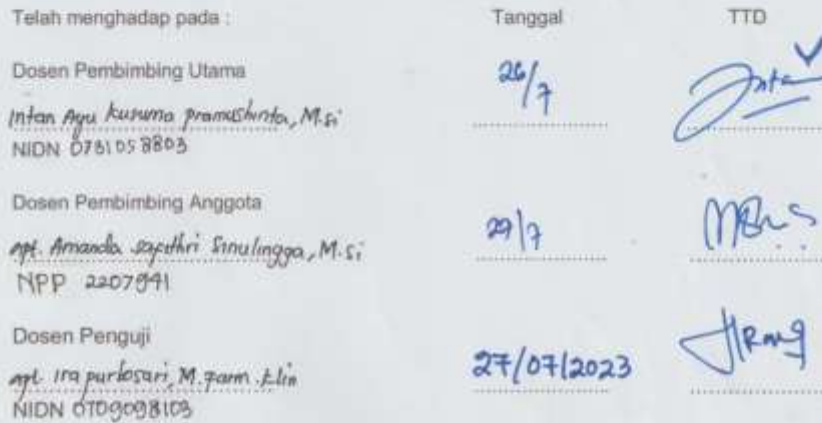 Telah menghadap pada : Tanggal TTD
Dosen Pembimbing Utama 26/7
Intan Ayu Kusuma Pramushinta, M.Si
NIDN 0731058803
Dosen Pembimbing Anggota
apt. Amanda Sinulingga, M.Si 29/7
NPP 2207941
Dosen Penguji
apt. Ira purbosari, M.Farm.Klin 27/07/2023
NIDN 0709098103